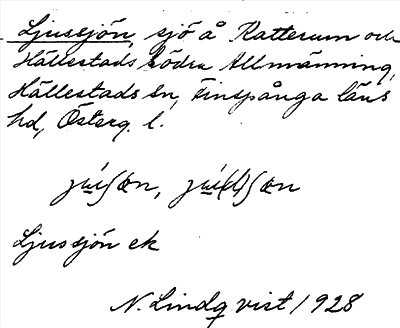 Ljussjön, sjö å Katterum och
Hällestads södra Allmänning,
Hällestads sn, Finspånga läns
hd, Österg. l.
Ljussjön ek
N. Lindqvist 1928